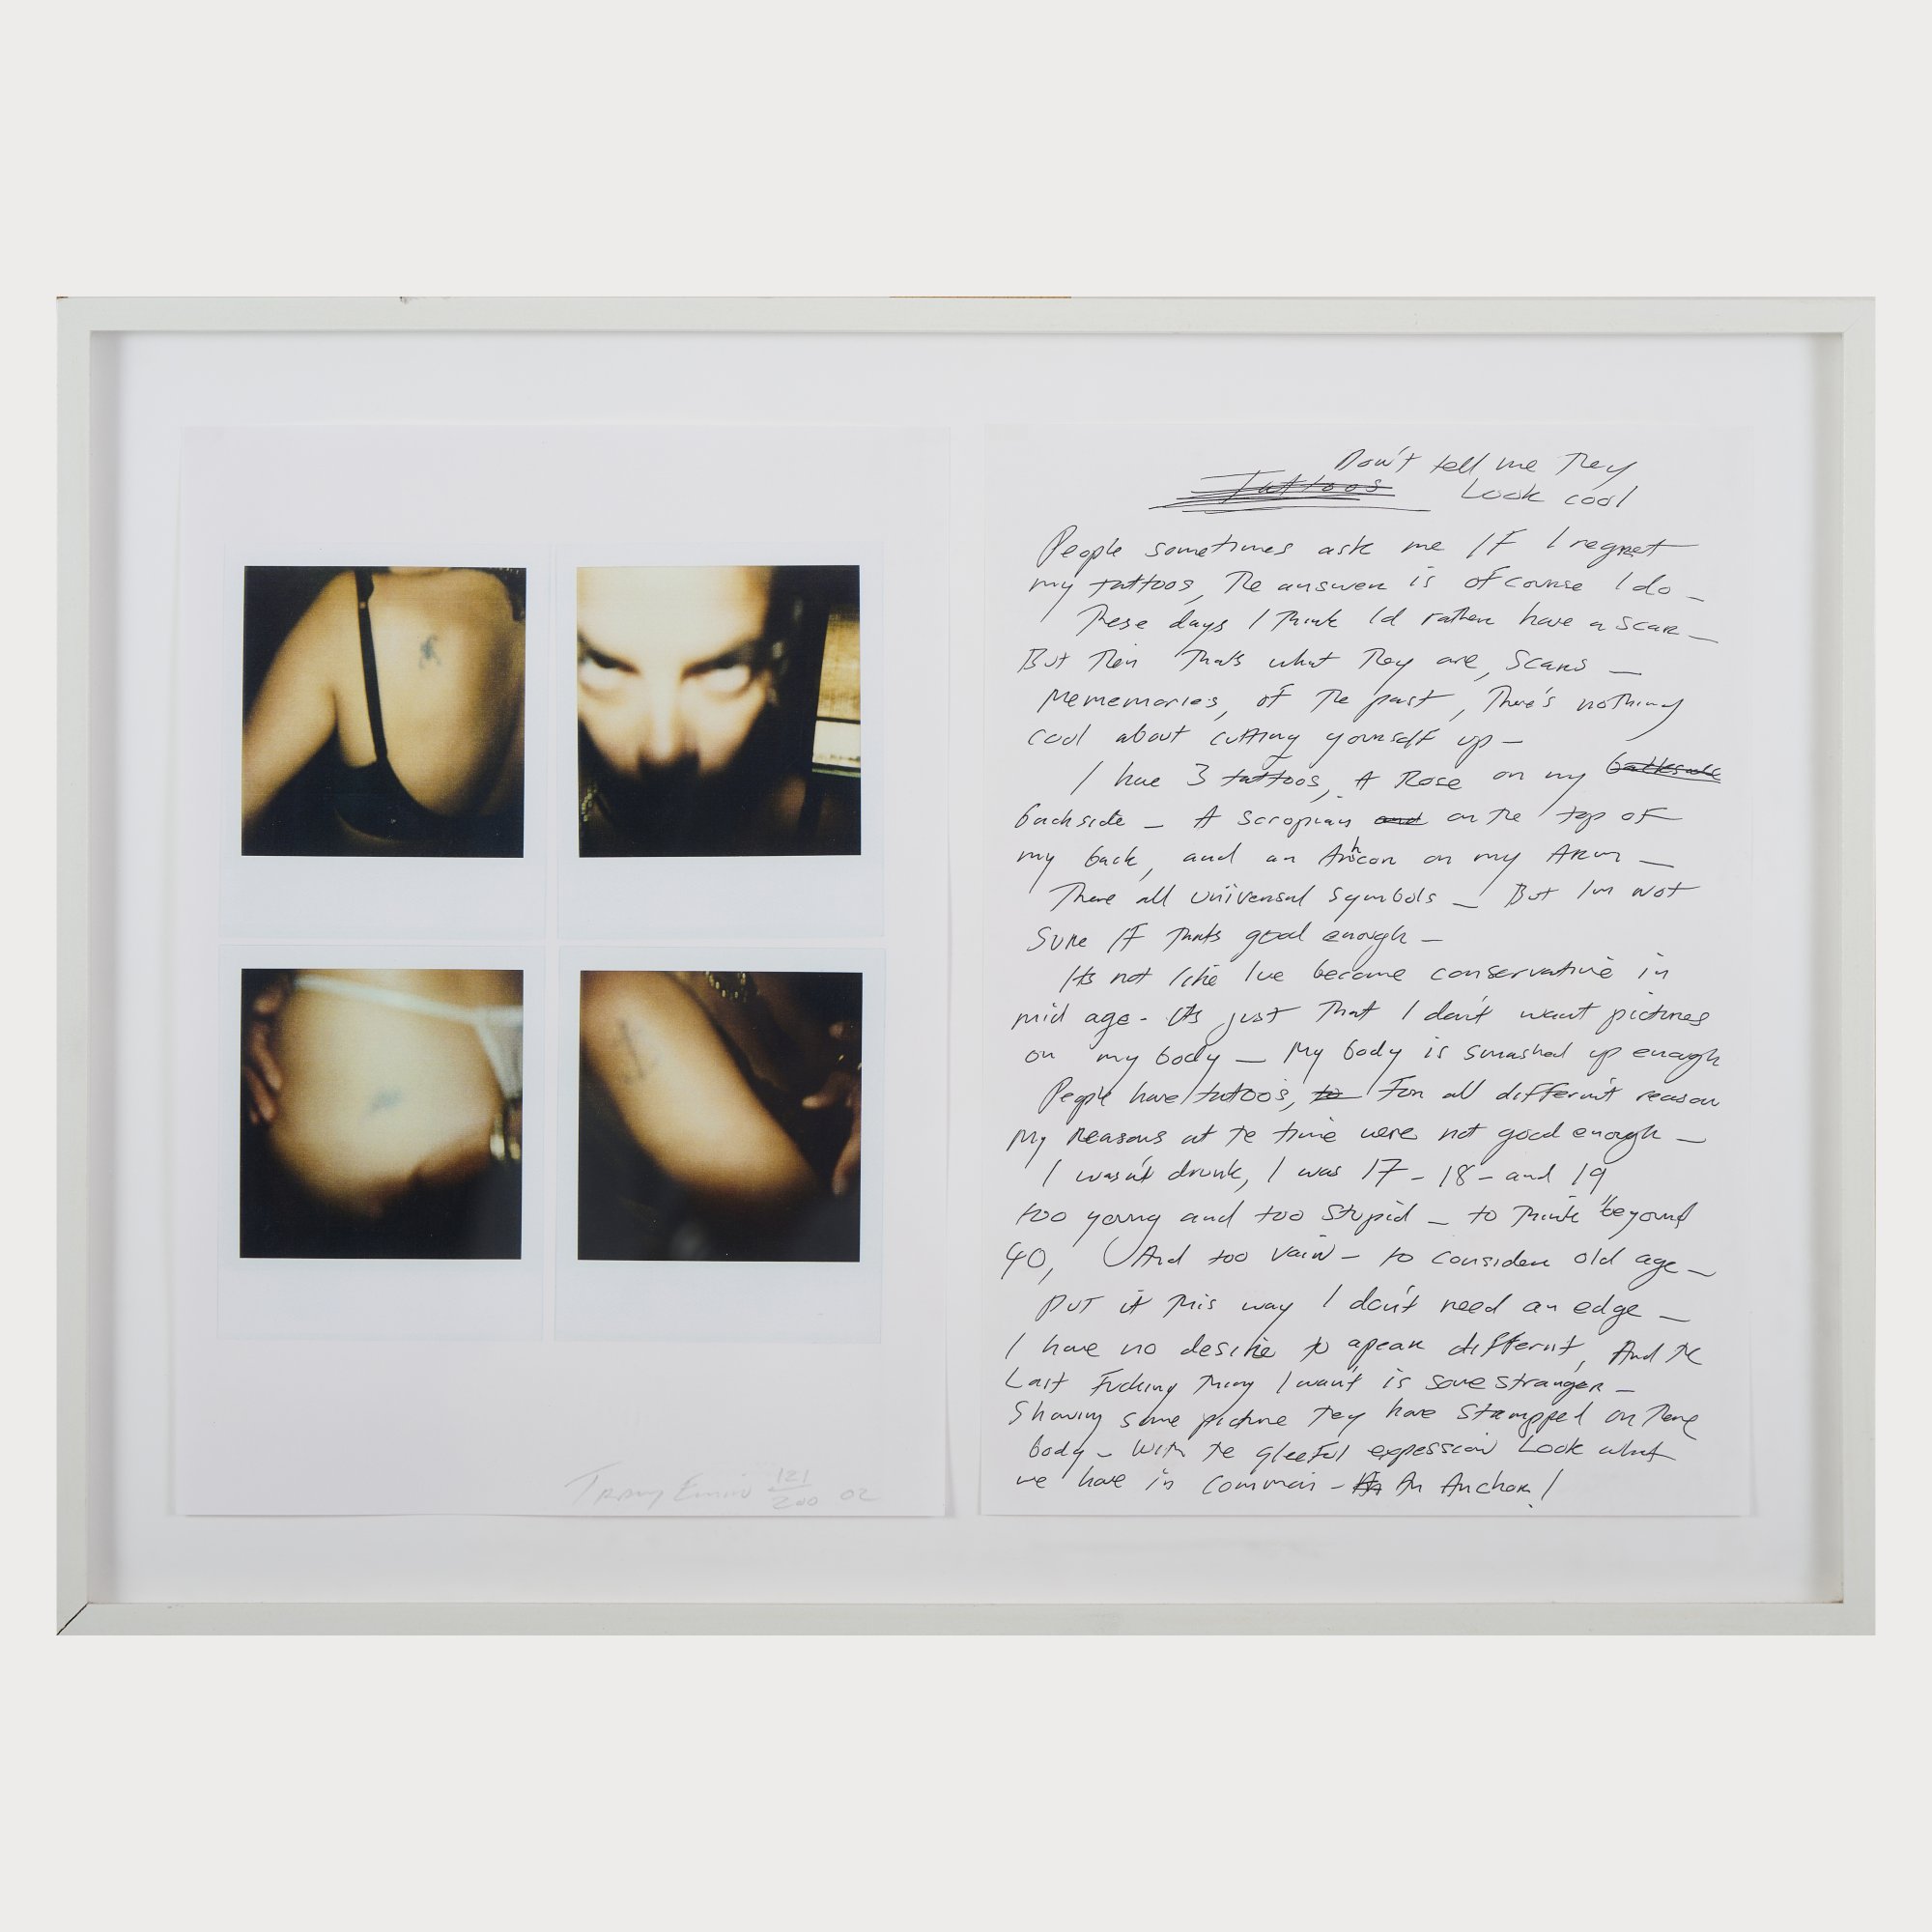 Don't tell me They
Tattoos Look cool
People sometimes ask me IF I regret
my tattoos, The answer is of course I do _
These days I Think Id rather have a scar _
But Then Thats what They are, Scars _
Mememories, of The past, There's nothing
cool about cutting yourself up _
I have 3 tattoos, A Rose on my
backside _ A Scropian and on The top of
my back, and an Anhcor on my Arm _
There all universal symbols _ But Im not
Sure IF Thats good enough _
Its not like Ive become conservative in
mid age - Its just That I don't want pictures
on my body _ My body is smashed up enough
People have tattoos, to For all differn't reason
My Reasons at te time were not good enough _
I wasn't drunk, I was 17 - 18 - and 19
too young and too stupid _ to Think beyond
40, And too vain - to consider old age _
Put it This way I don't need an edge _
I have no desire to apear differnt, And te
Last Fucking Thing I want is some stranger _
Showing some picture tey have stampped on There
body - with te gleeful expession Look what
we have in common - An An Anchor!
Tracey Emin 121/200 02